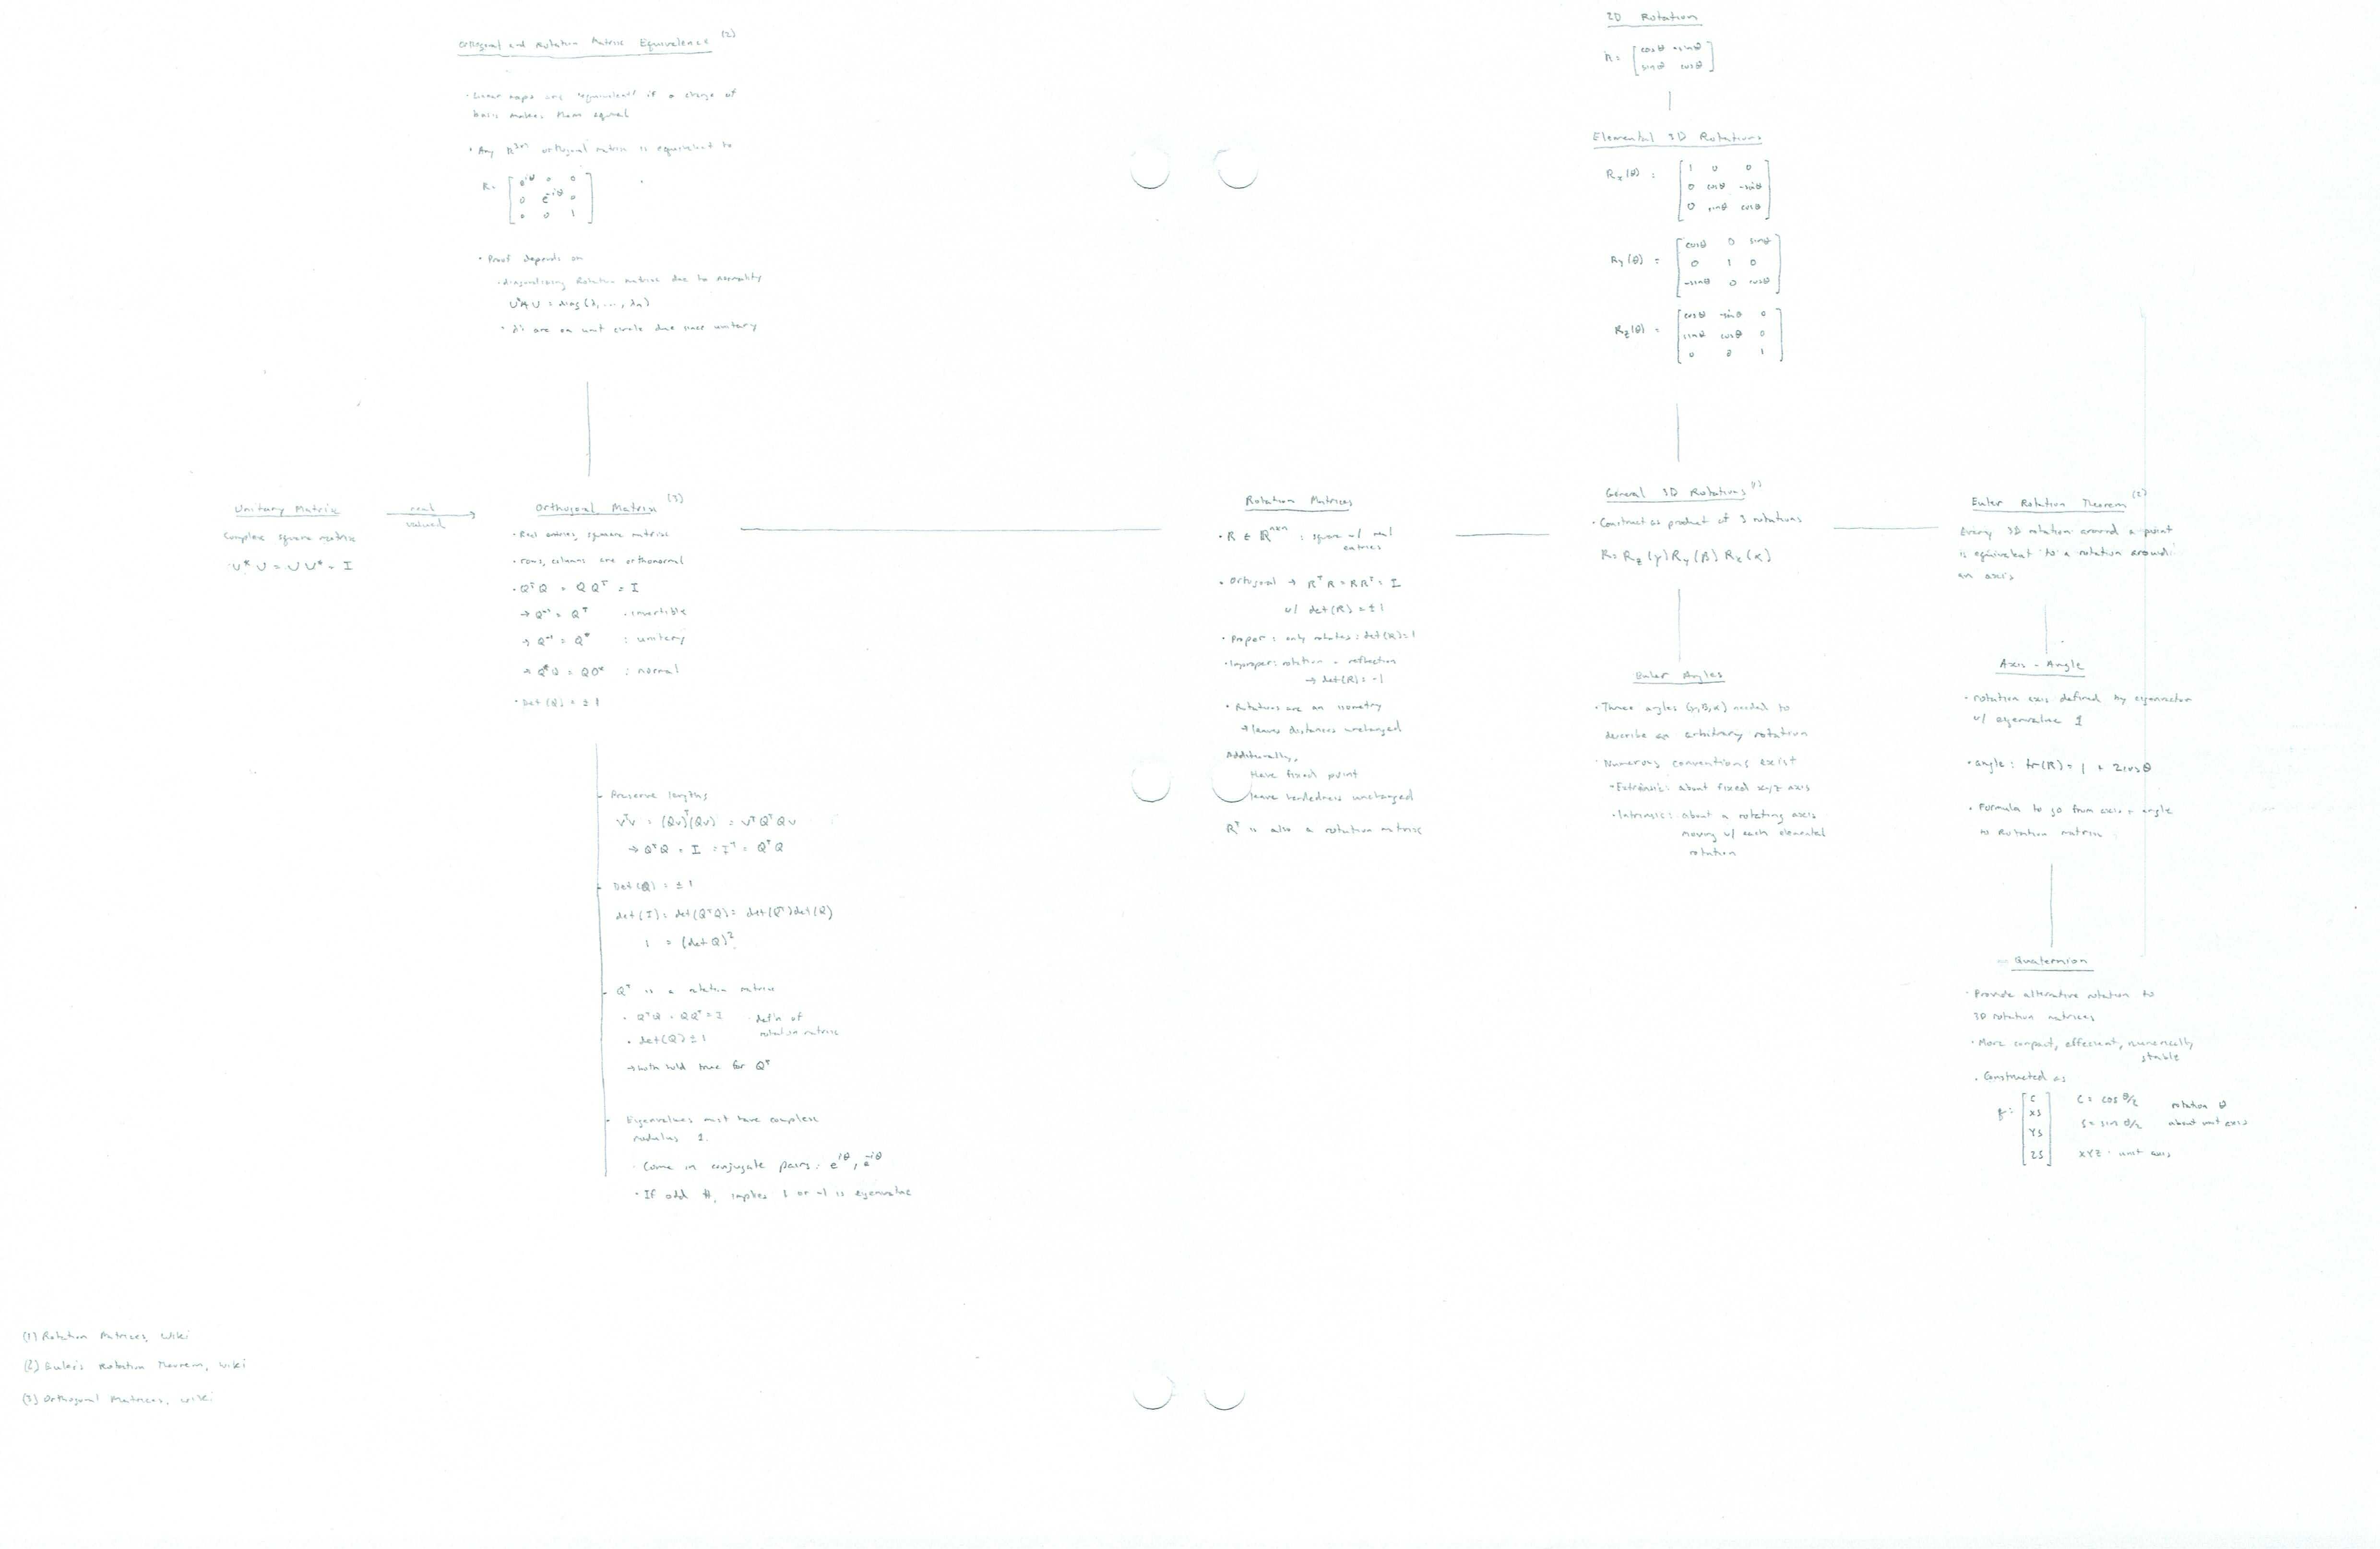 Orthogonal and Rotation Matrix Equivalence (2)
· Linear maps are "equivalent" if a change of
basis makes them equal
· Any R^3x3 orthogonal matrix is equivalent to
R = [ e^iθ 0 0
0 e^-iθ 0
0 0 1 ]
· Proof depends on
· diagonalizing Rotation matrix due to normality
U*AU = diag(λ, ..., λn)
· λ's are on unit circle due since unitary
Unitary Matrix
Complex square matrix
U*U = UU* = I
real
valued
Orthogonal Matrix (3)
· Real entries, square matrix
· rows, columns are orthonormal
· Q^T Q = Q Q^T = I
→ Q^-1 = Q^T : invertible
→ Q^-1 = Q* : unitary
→ Q*Q = QQ* : normal
· Det(Q) = ±1
- Preserve lengths
v^T v = (Qv)^T(Qv) = v^T Q^T Q v
→ Q^T Q = I = I^T = Q^T Q
- Det(Q) = ±1
det(I) = det(Q^T Q) = det(Q^T)det(Q)
1 = (det Q)^2
- Q^T is a rotation matrix
· Q^T Q = QQ^T = I · defn of
rotation matrix
· det(Q) ± 1
→ both hold true for Q^T
- Eigenvalues must have complex
modulus 1.
· Come in conjugate pairs: e^iθ, e^-iθ
· If odd #, implies 1 or -1 is eigenvalue
Rotation Matrices
· R ∈ ℝ^nxn : square w/ real
entries
· Ortogonal → R^T R = RR^T = I
w/ det(R) = ±1
· Proper: only rotates: det(R)=1
· Improper: rotation + reflection
→ det(R) = -1
· Rotations are an isometry
→ leaves distances unchanged
Additionally,
Have fixed point
leave handedness unchanged
R^T is also a rotation matrix
2D Rotation
R = [ cosθ -sinθ
sinθ cosθ ]
Elemental 3D Rotations
Rx(θ) = [ 1 0 0
0 cosθ -sinθ
0 sinθ cosθ ]
Ry(θ) = [ cosθ 0 sinθ
0 1 0
-sinθ 0 cosθ ]
Rz(θ) = [ cosθ -sinθ 0
sinθ cosθ 0
0 0 1 ]
General 3D Rotations (1)
· Construct as product of 3 rotations
R = Rz(γ) Ry(β) Rx(α)
Euler Angles
· Three angles (γ,β,α) needed to
describe an arbitrary rotation
· Numerous conventions exist
- Extrinsic: about fixed xyz axis
· Intrinsic: about a rotating axis
moving w/ each elemental
rotation
Euler Rotation Theorem (2)
Every 3D rotation around a point
is equivalent to a rotation around
an axis
Axis - Angle
· rotation axis defined by eigenvector
w/ eigenvalue 1
· angle: tr(R) = 1 + 2cosθ
· Formula to go from axis + angle
to Rotation matrix
Quaternion
· Provide alternative rotation to
3D rotation matrices
· More compact, effecient, numerically
stable
· Constructed as
q = [ C
XS
YS
ZS ]
C = cos θ/2 rotation θ
S = sin θ/2 about unit axis
XYZ · unit axis
(1) Rotation Matrices, Wiki
(2) Euler's Rotation Theorem, Wiki
(3) Orthogonal Matrices, Wiki